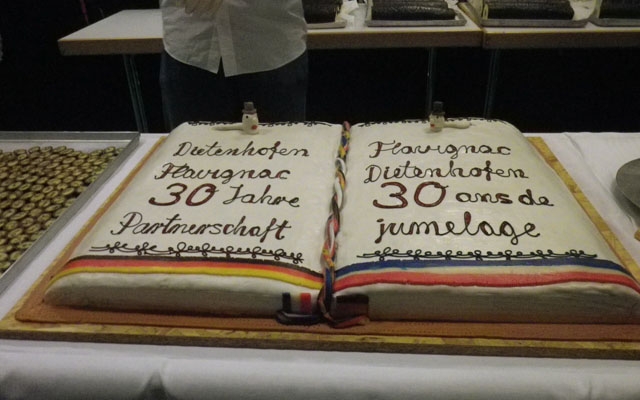 Dietenhofen
Flavignac
30 Jahre
Partnerschaft
Flavignac
Dietenhofen
30 ans de
jumelage